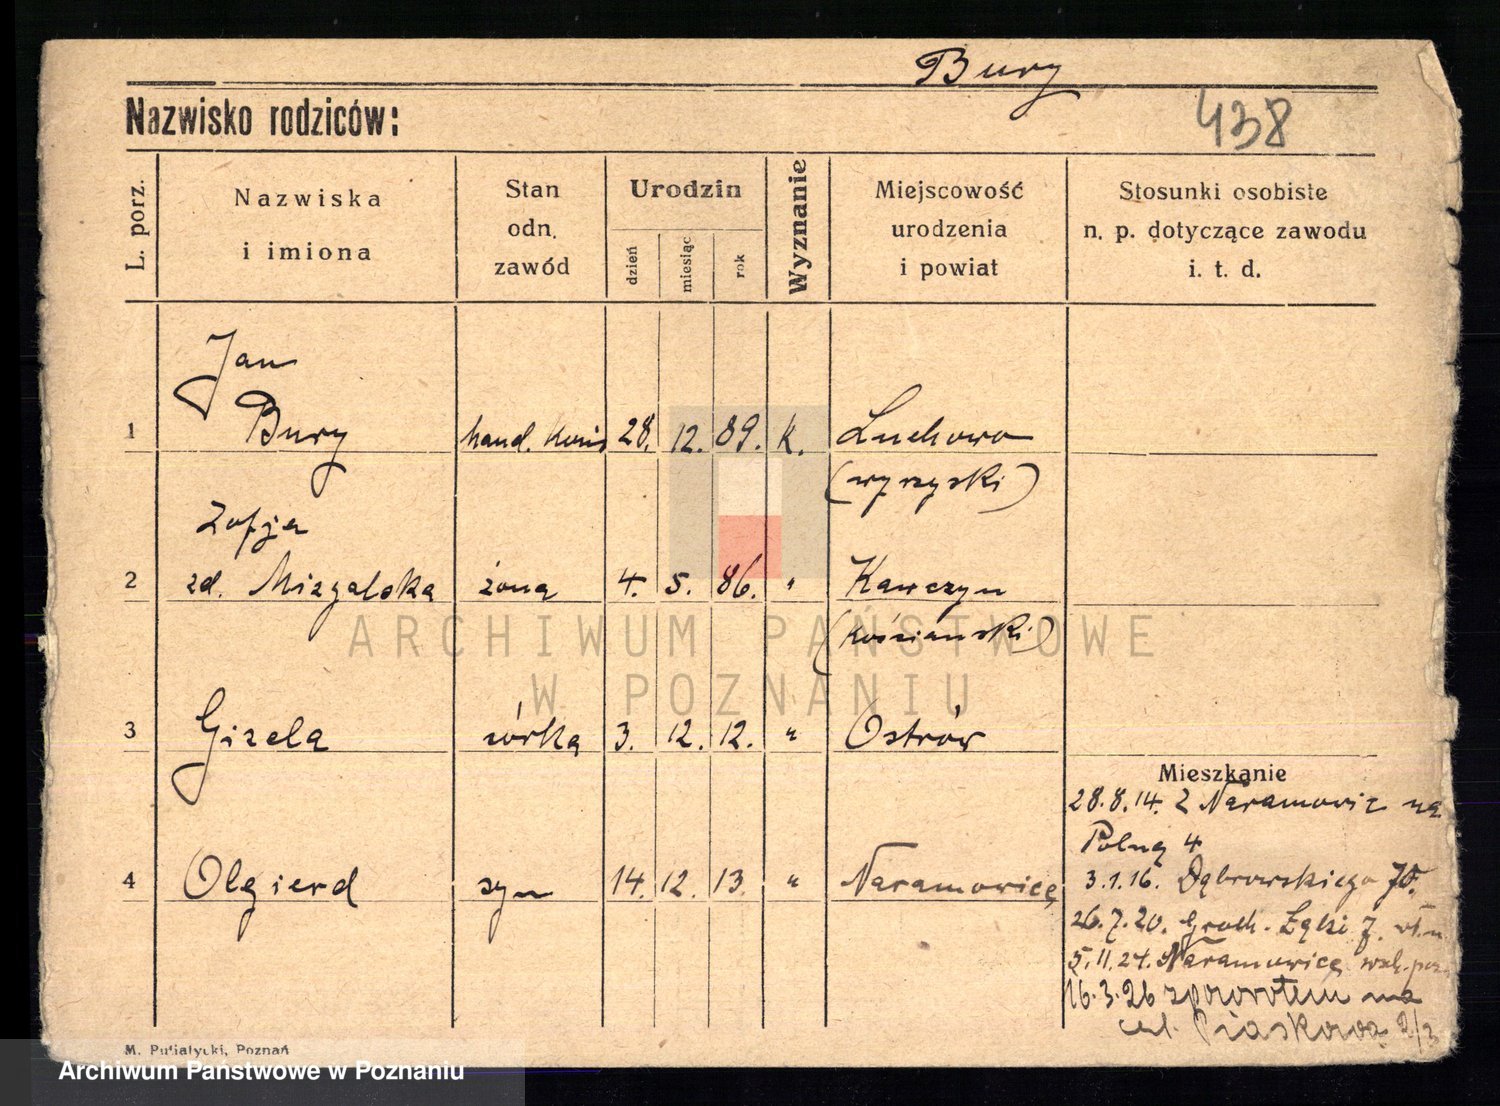 Bury
Nazwisko rodziców:
438
L. porz.
Nazwiska
i imiona
Stan
odn.
zawód
Urodzin
dzień
miesiąc
rok
Wyznanie
Miejscowość
urodzenia
i powiat
Stosunki osobiste
n. p. dotyczące zawodu
i. t. d.
Jan
1 Bury hand. Koni 28. 12. 89. k. Luchowo
(wyrzyski)
Zofja
2 zd. Mizgalska żona 4. 5. 86. " Kawczyn
(kościański)
3 Gizela córka 3. 12. 12. " Ostrów
Mieszkanie
28.8.14. Z Naramowic na
Polną 4
4 Olgierd syn 14. 12. 13. " Naramowice
3.1.16. Dąbrowskiego
26.7.20. Groch. Łąki 7.
5.11.24. Naramowice
16.3.26 zpowrotem na
ul. Piaskową 2/3
M. Putiatycki, Poznań
Archiwum Państwowe w Poznaniu
ARCHIWUM PAŃSTWOWE
W POZNANIU